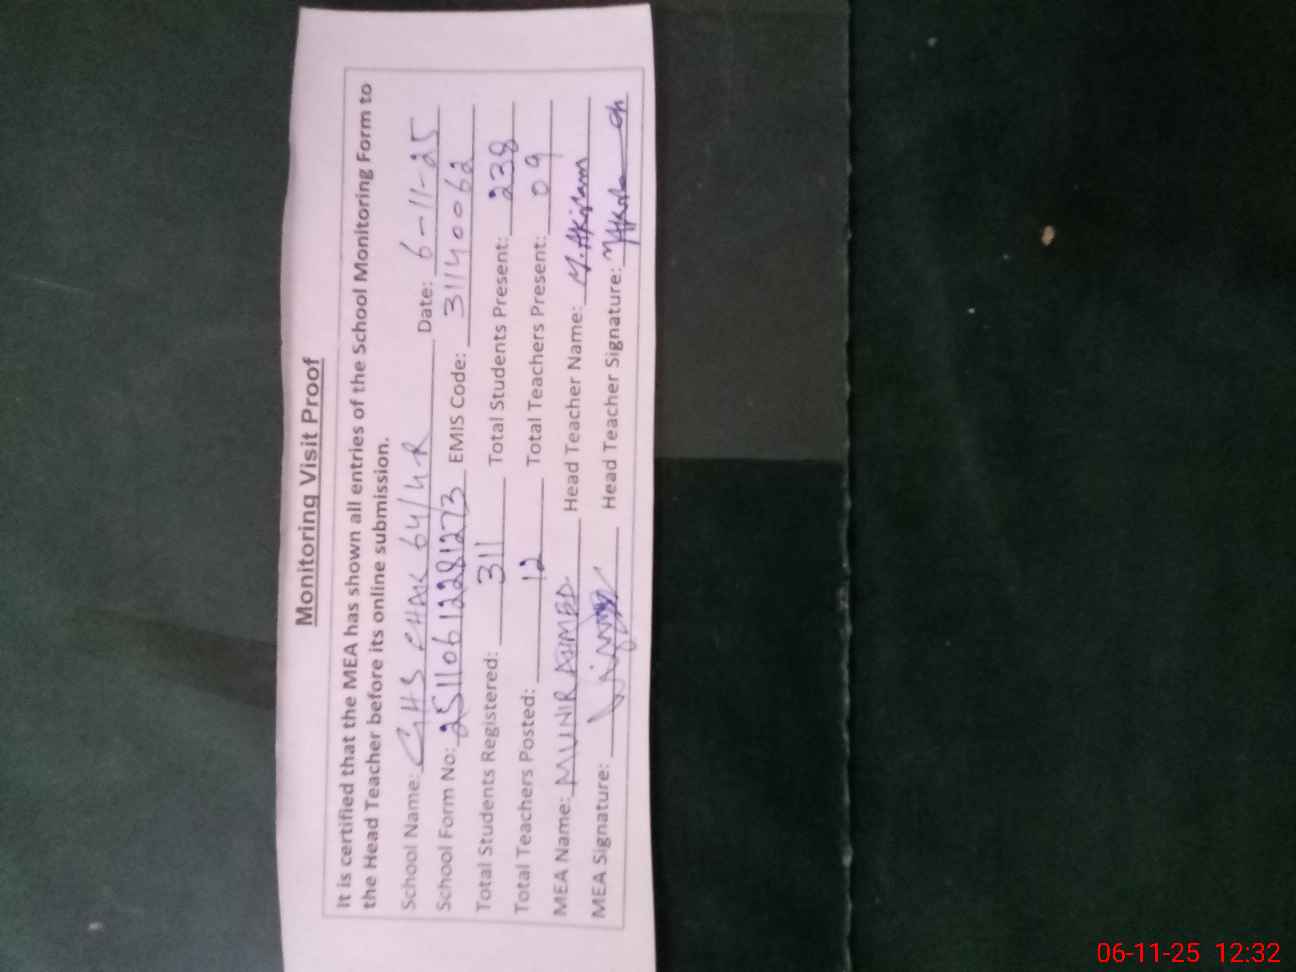 Monitoring Visit Proof
It is certified that the MEA has shown all entries of the School Monitoring Form to
the Head Teacher before its online submission.
School Name: GHS CHAK 64/4R Date: 6-11-25
School Form No: 25110612281273 EMIS Code: 31140062
Total Students Registered: 311 Total Students Present: 238
Total Teachers Posted: 12 Total Teachers Present: 09
MEA Name: MUNIR AHMED Head Teacher Name: M. Akram
MEA Signature: Head Teacher Signature:
06-11-25 12:32